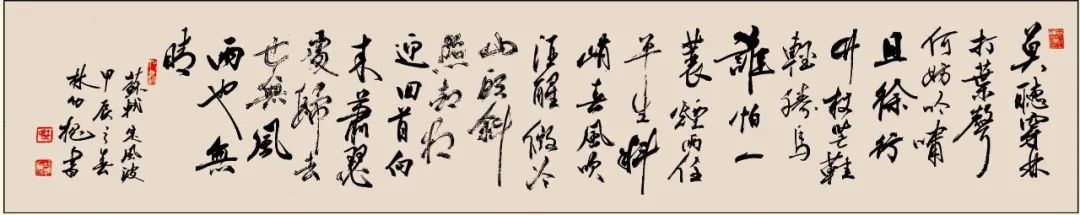 莫聽穿林
打葉聲
何妨吟嘯
且徐行
竹杖芒鞋
輕勝馬
誰怕一
蓑煙雨任
平生料
峭春風吹
酒醒微冷
山頭斜
照却相
迎回首向
来蕭瑟
處歸去
也無風
雨也無
晴
蘇軾定風波
甲辰之春
林書